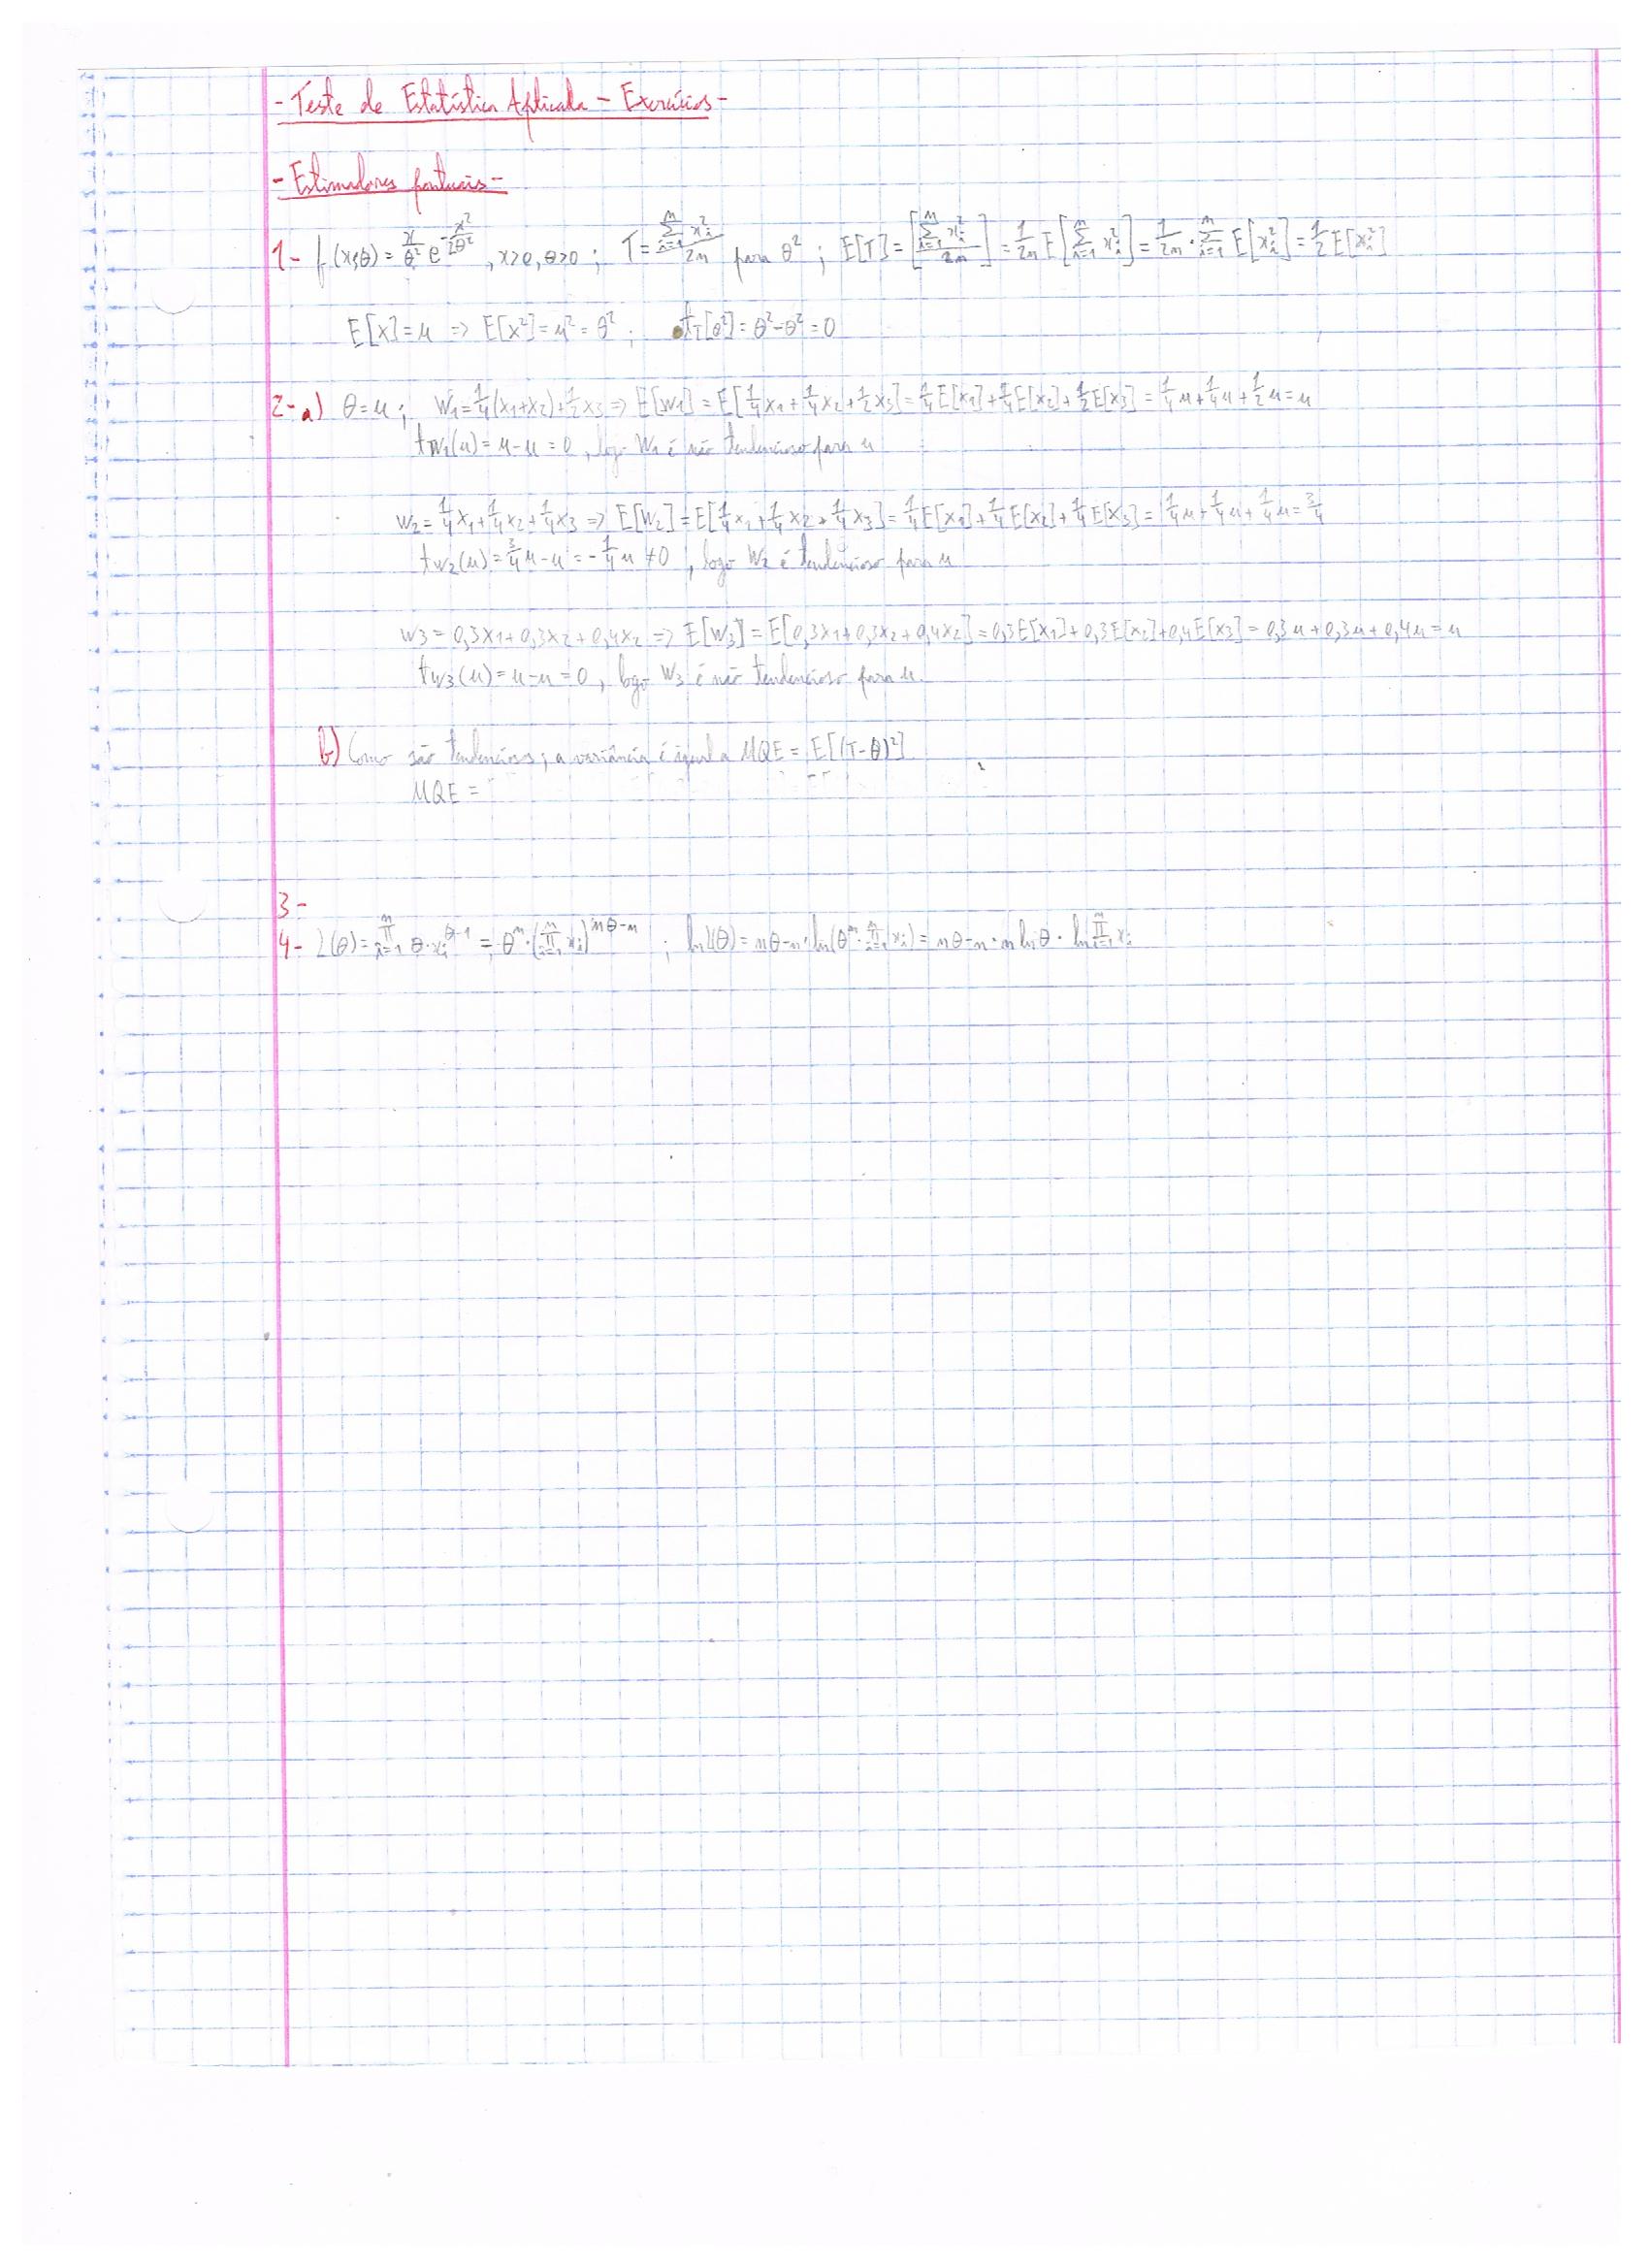 - Teste de Estatística Aplicada - Exercícios -
- Estimadores pontuais -
1- f(x;θ) = x/θ² e^(-x²/2θ²), x>0, θ>0 ; T = Σ_{i=1}^{n} x_i² / 2n para θ² ; E[T] = [Σ_{i=1}^{n} x_i² / 2n] = 1/2n E[Σ_{i=1}^{n} x_i²] = 1/2n · Σ_{i=1}^{n} E[x_i²] = 1/2 E[x_i²]
E[x] = μ => E[x²] = μ² = θ² ; t_T[θ²] = θ² - θ² = 0
2- a) θ = μ ; W1 = 1/4(x1+x2) + 1/2 x3 => E[W1] = E[1/4 x1 + 1/4 x2 + 1/2 x3] = 1/4 E[x1] + 1/4 E[x2] + 1/2 E[x3] = 1/4 μ + 1/4 μ + 1/2 μ = μ
t_W1(μ) = μ - μ = 0, logo W1 é não tendencioso para μ
W2 = 1/4 x1 + 1/4 x2 + 1/4 x3 => E[W2] = E[1/4 x1 + 1/4 x2 + 1/4 x3] = 1/4 E[x1] + 1/4 E[x2] + 1/4 E[x3] = 1/4 μ + 1/4 μ + 1/4 μ = 3/4
t_W2(μ) = 3/4 μ - μ = - 1/4 μ ≠ 0, logo W2 é tendencioso para μ
W3 = 0,3x1 + 0,3x2 + 0,4x2 => E[W3] = E[0,3x1 + 0,3x2 + 0,4x2] = 0,3E[x1] + 0,3E[x2] + 0,4E[x3] = 0,3μ + 0,3μ + 0,4μ = μ
t_W3(μ) = μ - μ = 0, logo W3 é não tendencioso para μ.
b) Como são tendenciosos, a variância é igual a MQE = E[(T-θ)²]
MQE =
3-
4- L(θ) = Π_{i=1}^{n} θ · x_i^(θ-1) = θ^n · (Π_{i=1}^{n} x_i)^(nθ-n) ; ln L(θ) = nθ-n · ln(θ^n · Π_{i=1}^{n} x_i) = nθ-n · n ln θ · ln Π_{i=1}^{n} x_i